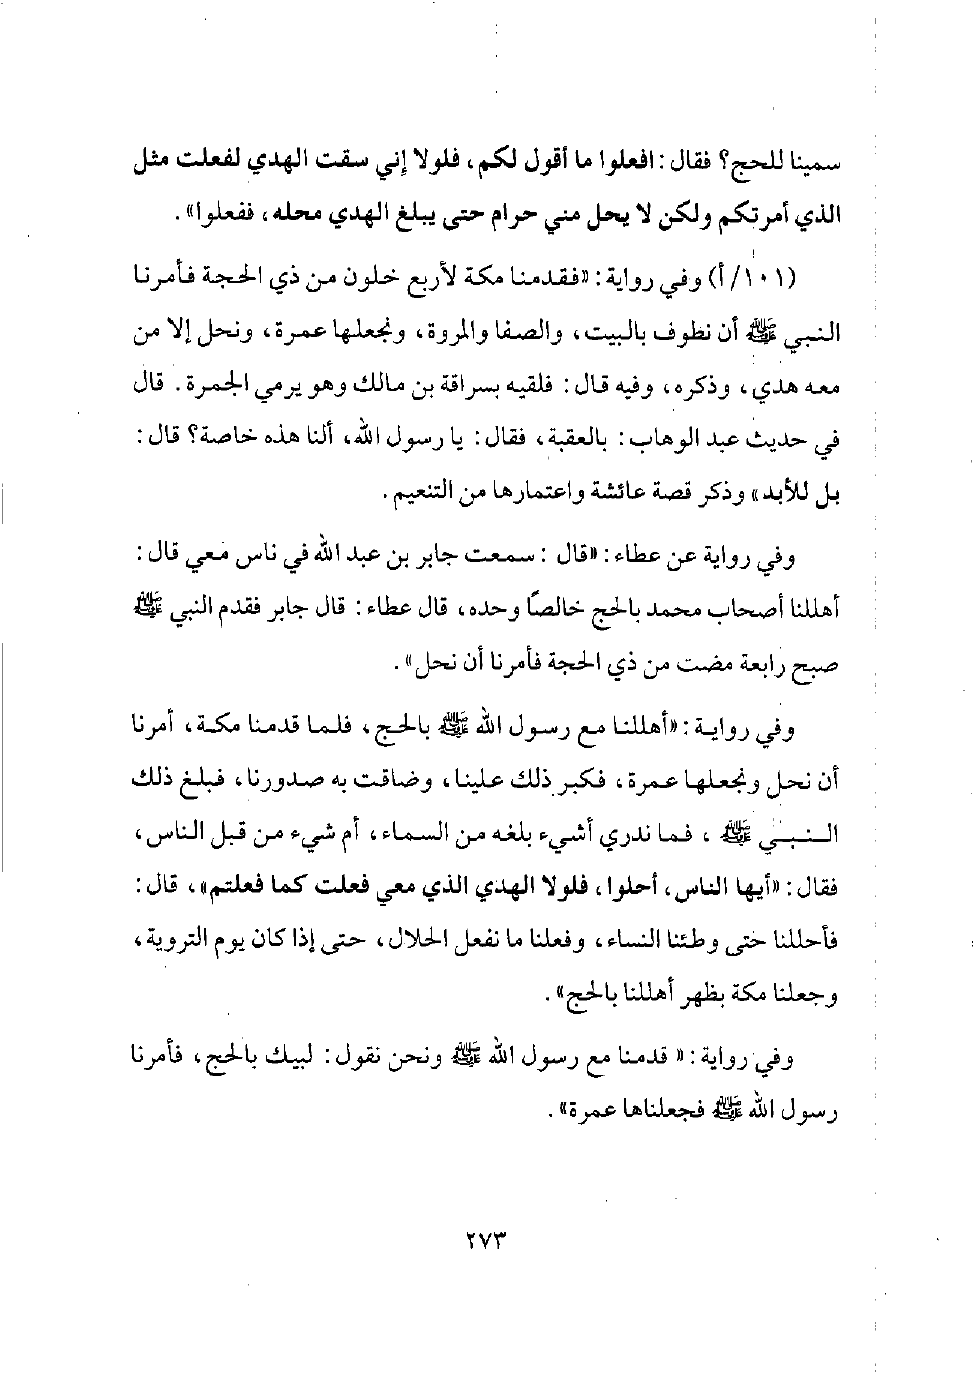 سمينا للحج؟ فقال: افعلوا ما أقول لكم، فلولا إني سقت الهدي لفعلت مثل
الذي أمرتكم ولكن لا يحل مني حرام حتى يبلغ الهدي محله، ففعلوا».
(١٠١/أ) وفي رواية: «فقدمنا مكة لأربع خلون من ذي الحجة فأمرنا
النبي ﷺ أن نطوف بالبيت، والصفا والمروة، ونجعلها عمرة، ونحل إلا من
معه هدي، وذكره، وفيه قال: فلقيه بسراقة بن مالك وهو يرمي الجمرة. قال
في حديث عبد الوهاب: بالعقبة، فقال: يا رسول الله، ألنا هذه خاصة؟ قال:
بل للأبد» وذكر قصة عائشة واعتمارها من التنعيم.
وفي رواية عن عطاء: «قال: سمعت جابر بن عبد الله في ناس معي قال:
أهللنا أصحاب محمد بالحج خالصًا وحده، قال عطاء: قال جابر فقدم النبي ﷺ
صبح رابعة مضت من ذي الحجة فأمرنا أن نحل».
وفي رواية: «أهللنا مع رسول الله ﷺ بالحج، فلما قدمنا مكة، أمرنا
أن نحل ونجعلها عمرة، فكبر ذلك علينا، وضاقت به صدورنا، فبلغ ذلك
النبي ﷺ، فما ندري أشيء بلغه من السماء، أم شيء من قبل الناس،
فقال: «أيها الناس، أحلوا، فلولا الهدي الذي معي فعلت كما فعلتم»، قال:
فأحللنا حتى وطئنا النساء، وفعلنا ما نفعل الحلال، حتى إذا كان يوم التروية،
وجعلنا مكة بظهر أهللنا بالحج».
وفي رواية: « قدمنا مع رسول الله ﷺ ونحن نقول: لبيك بالحج، فأمرنا
رسول الله ﷺ فجعلناها عمرة».
٢٧٣